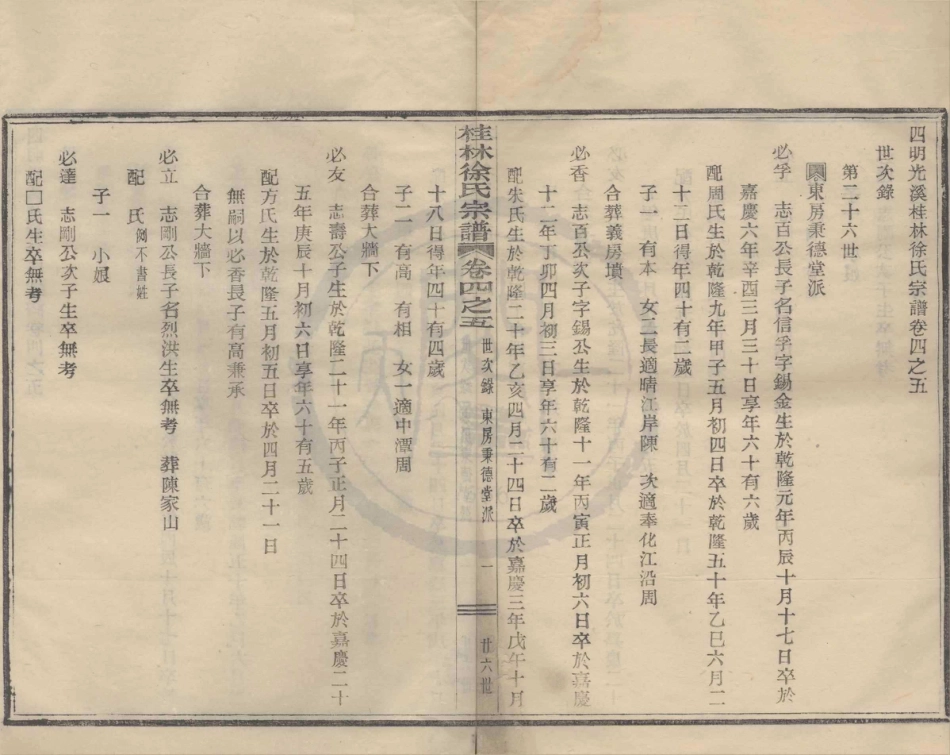 四明光溪桂林徐氏宗譜卷四之五
世次錄
第二十六世
東房秉德堂派
必孚 志百公長子名信孚字錫金生於乾隆元年丙辰十月十七日卒於
嘉慶六年辛酉三月三十日享年六十有六歲
配周氏生於乾隆九年甲子五月初四日卒於乾隆五十年乙巳六月二
十二日得年四十有二歲
子一 有本 女二長適晴江岸陳 次適奉化江沿周
合葬義房墳
必香 志百公次子字錫公生於乾隆十一年丙寅正月初六日卒於嘉慶
十二年丁卯四月初三日享年六十有二歲
配朱氏生於乾隆二十年乙亥四月二十四日卒於嘉慶三年戊午十月
十八日得年四十有四歲
子二 有高 有相 女一適中潭周
合葬大牆下
桂林徐氏宗譜 卷四之五 世次錄 東房秉德堂派 一 廿六世
必友 志壽公子生於乾隆二十一年丙子正月二十四日卒於嘉慶二十
五年庚辰十月初六日享年六十有五歲
配方氏生於乾隆五月初五日卒於四月二十一日
無嗣以必香長子有高兼承
合葬大牆下
必立 志剛公長子名烈洪生卒無考 葬陳家山
配 氏例不書姓
子一 小娘
必達 志剛公次子生卒無考
配□氏生卒無考